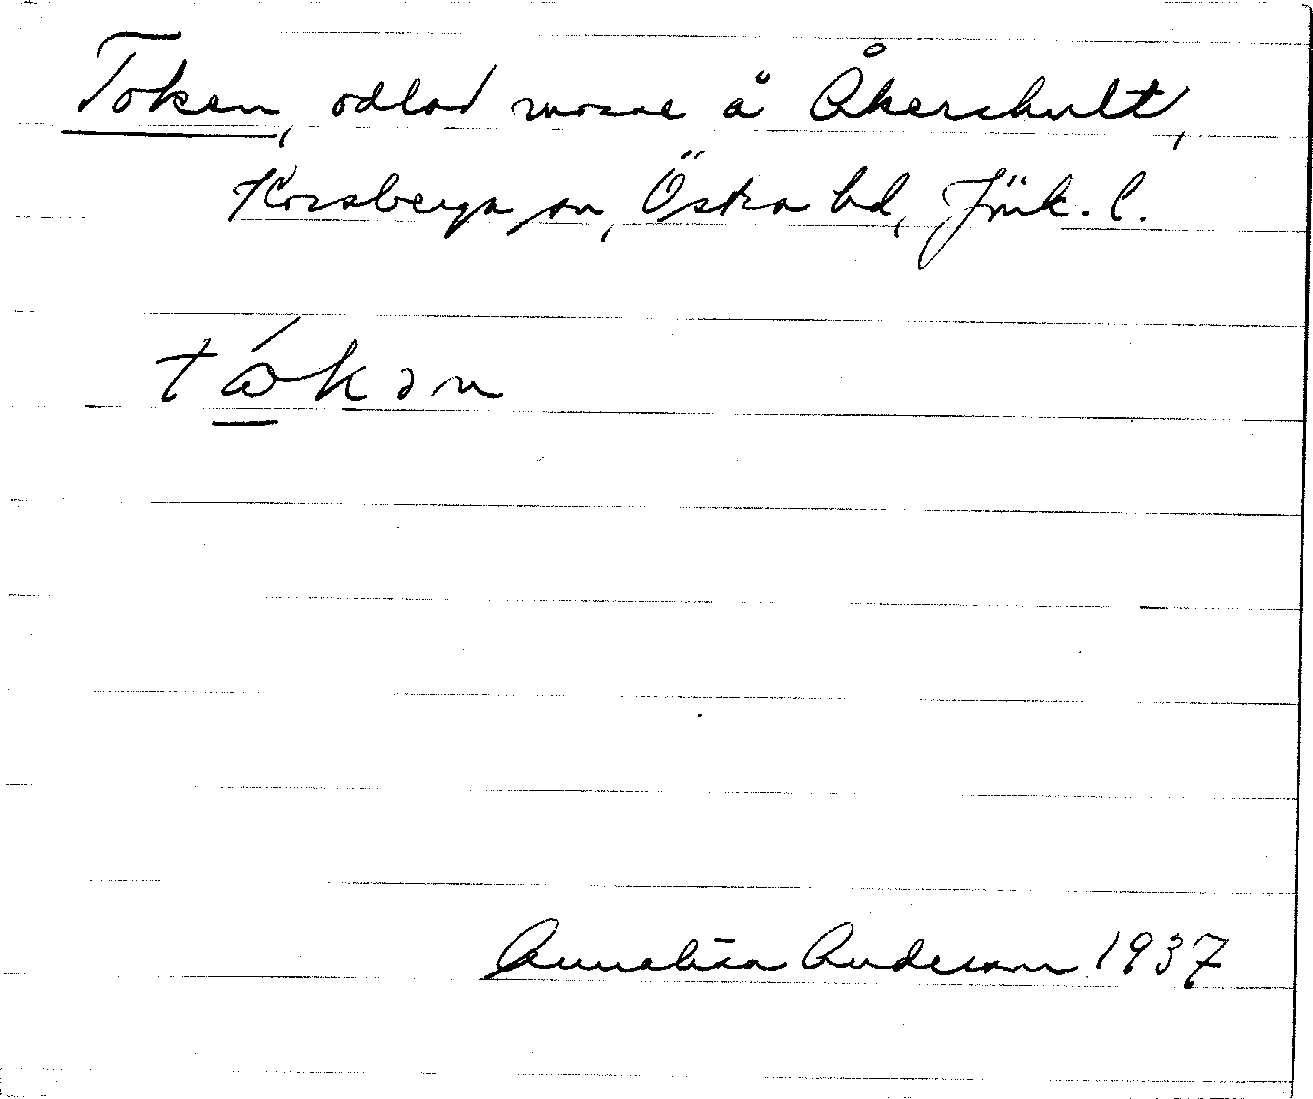 Token, odlad mosse å Åkershult,
Korsberga sn, Östra hd, Jönk. l.
tǻ̱kən
Annalisa Anderson 1937